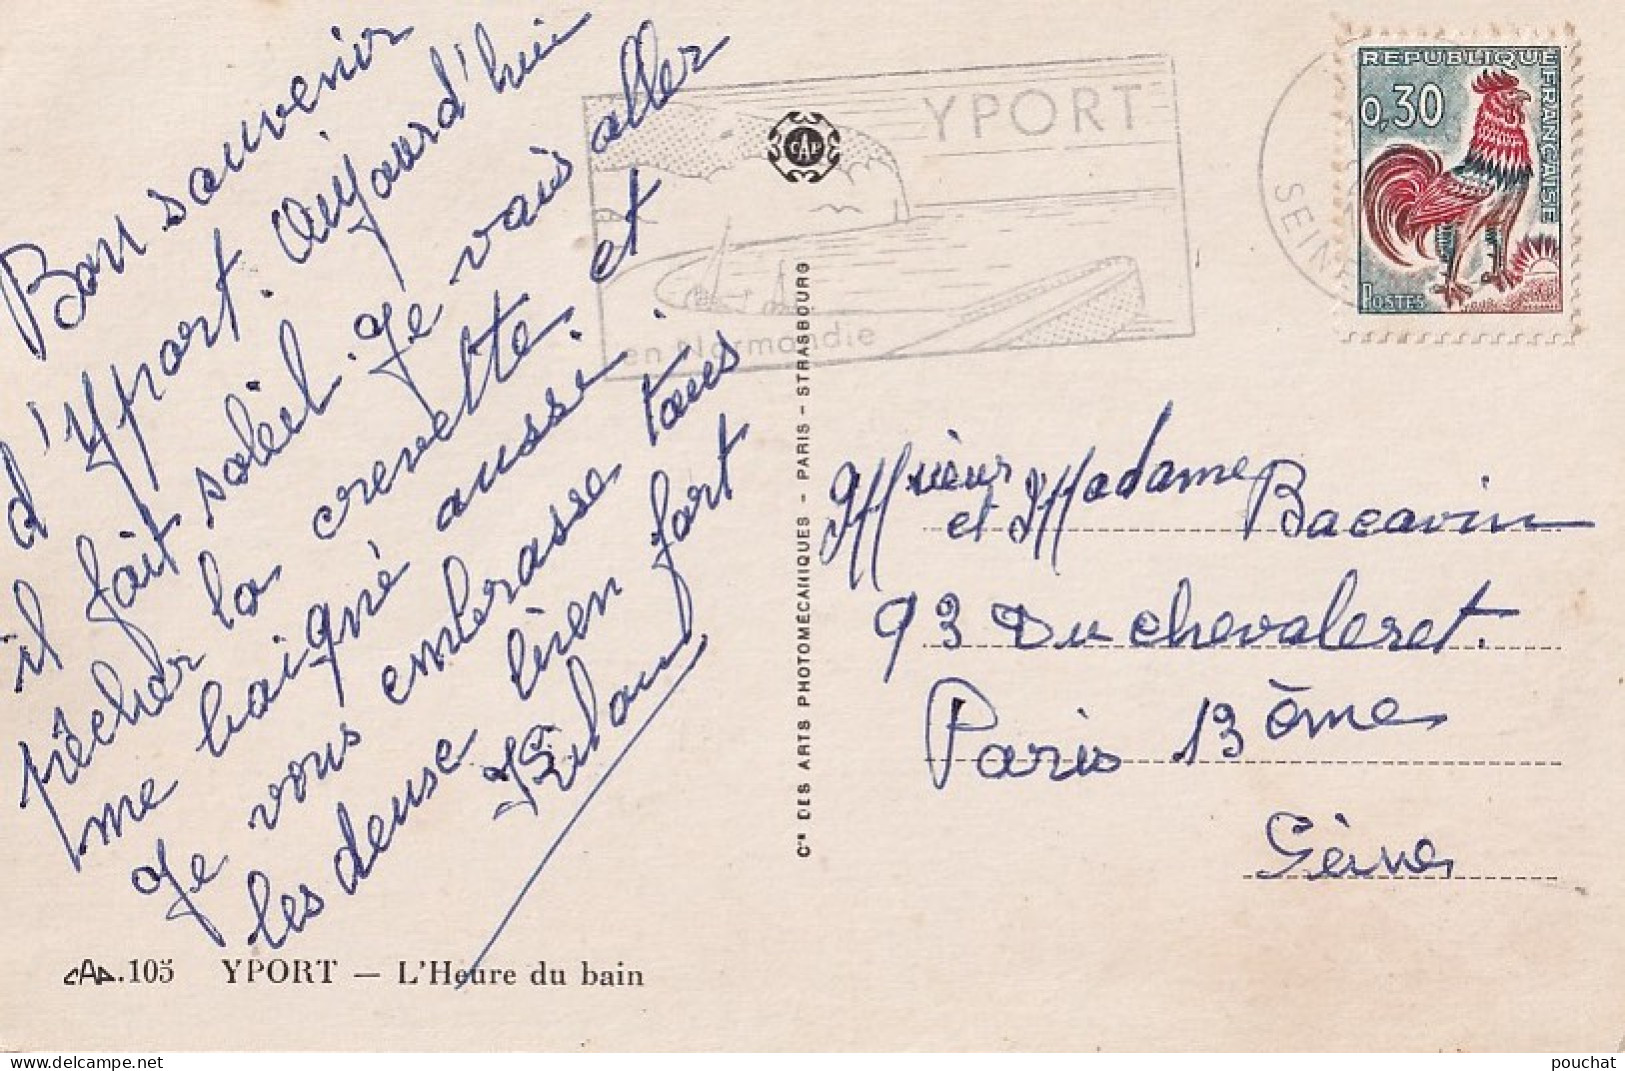 Bon souvenir
d'Yport. Aujourd'hui
il fait soleil. Je vais aller
pêcher la crevette. et
me baigné aussi.
Je vous embrasse tous
les deuse bien fort
YPORT
en Normandie
SEINE
REPUBLIQUE FRANÇAISE
0,30
POSTES
CAP
Cie DES ARTS PHOTOMÉCANIQUES - PARIS - STRASBOURG
Mrieur
et Madame Bacavin
93 Du chevaleret.
Paris 13 ème
Sèine
CAP.105 YPORT — L'Heure du bain
pouchat